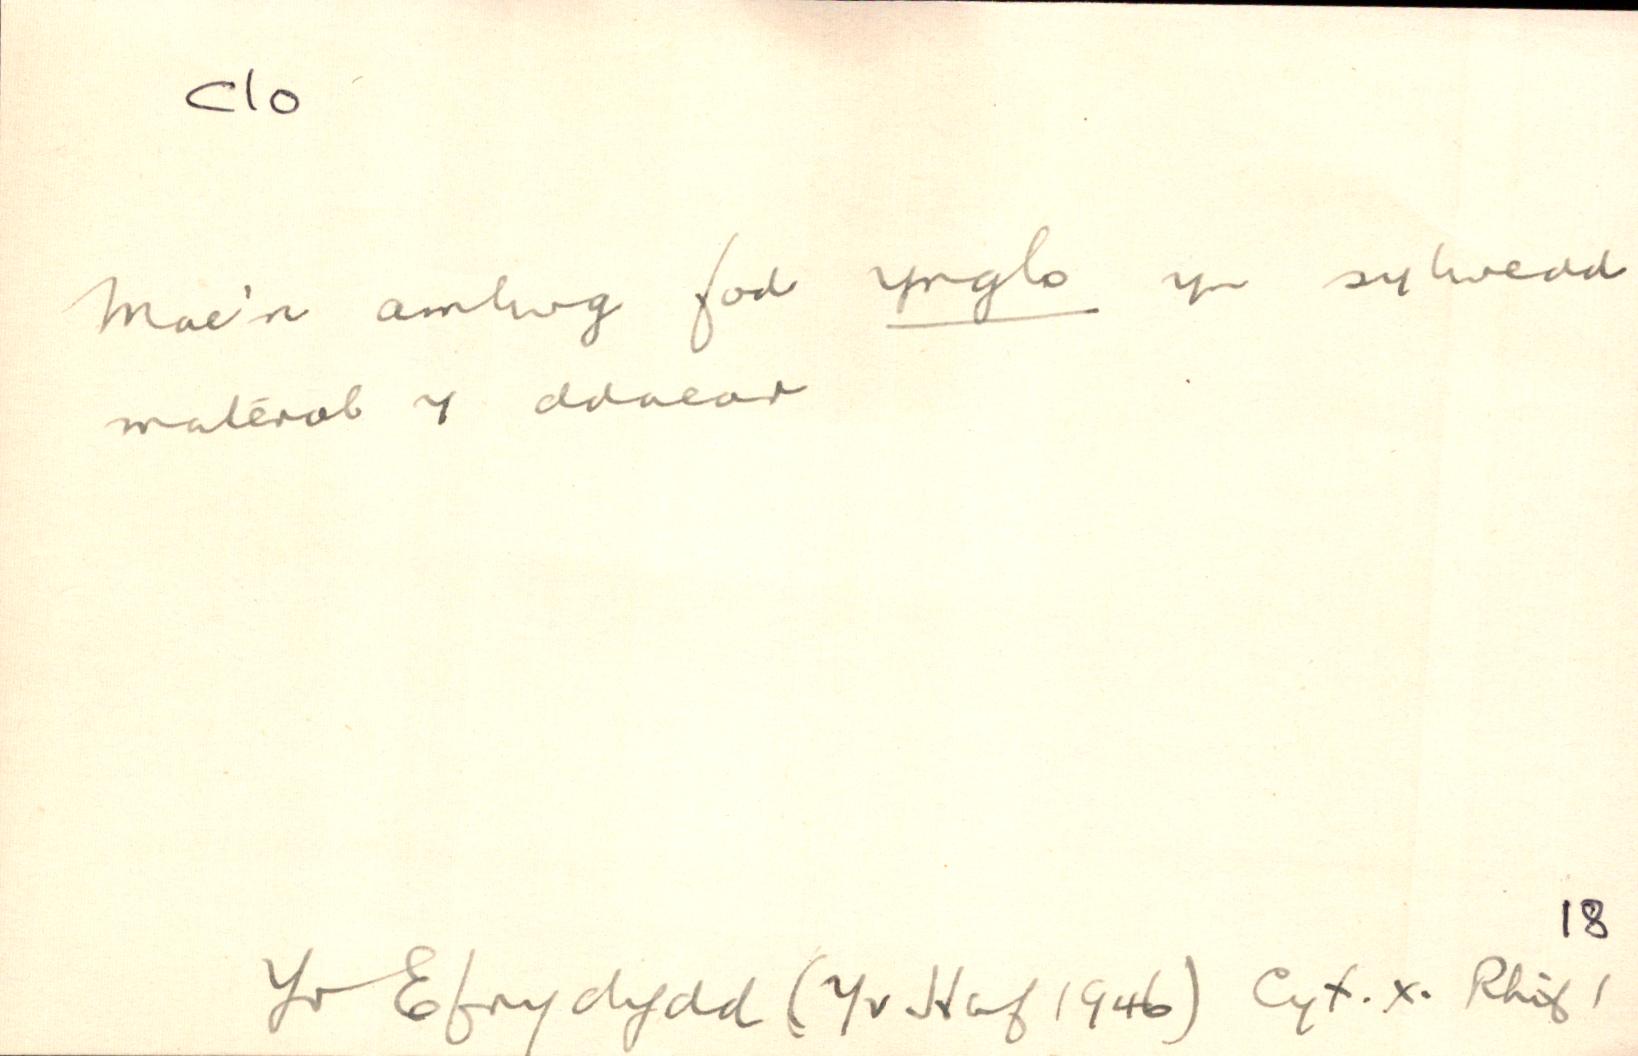 clo
Mae'n amlwg fod ynglo yn sylwedd
materol y ddaear
18
Yr Efrydydd (Yr Haf 1946) Cyf. x. Rhif 1